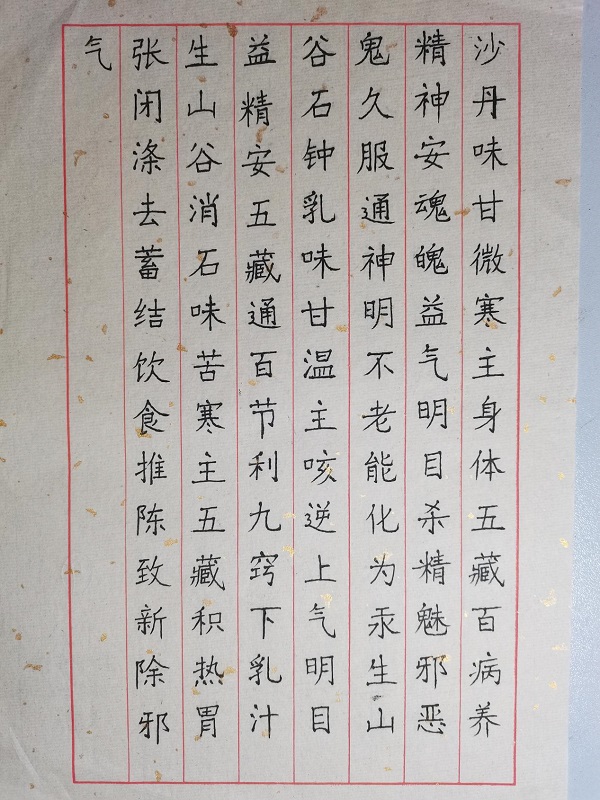 沙丹味甘微寒主身体五藏百病养
精神安魂魄益气明目杀精魅邪恶
鬼久服通神明不老能化为汞生山
谷石钟乳味甘温主咳逆上气明目
益精安五藏通百节利九窍下乳汁
生山谷消石味苦寒主五藏积热胃
张闭涤去蓄结饮食推陈致新除邪
气